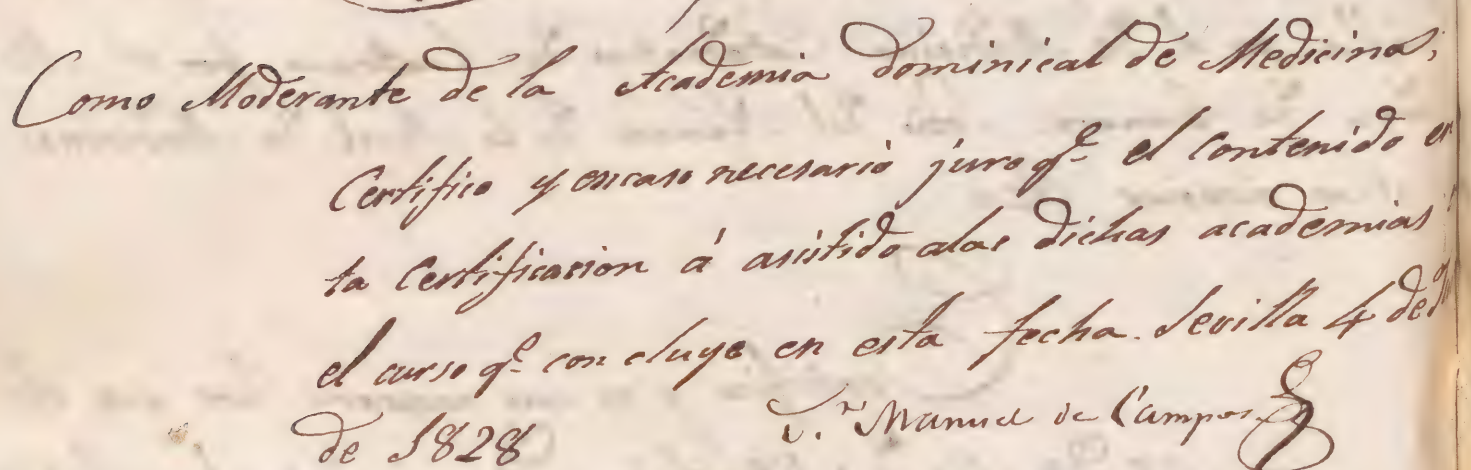 Como Moderante de la Academia Dominical de Medicina,
Certifico y encaso necesario juro qe. el Contenido en
ta Certificacion á asistido alas dichas academias
el curso qe. con cluye en esta fecha. Sevilla 4 de
de 1828
Dr. Manuel de Campos